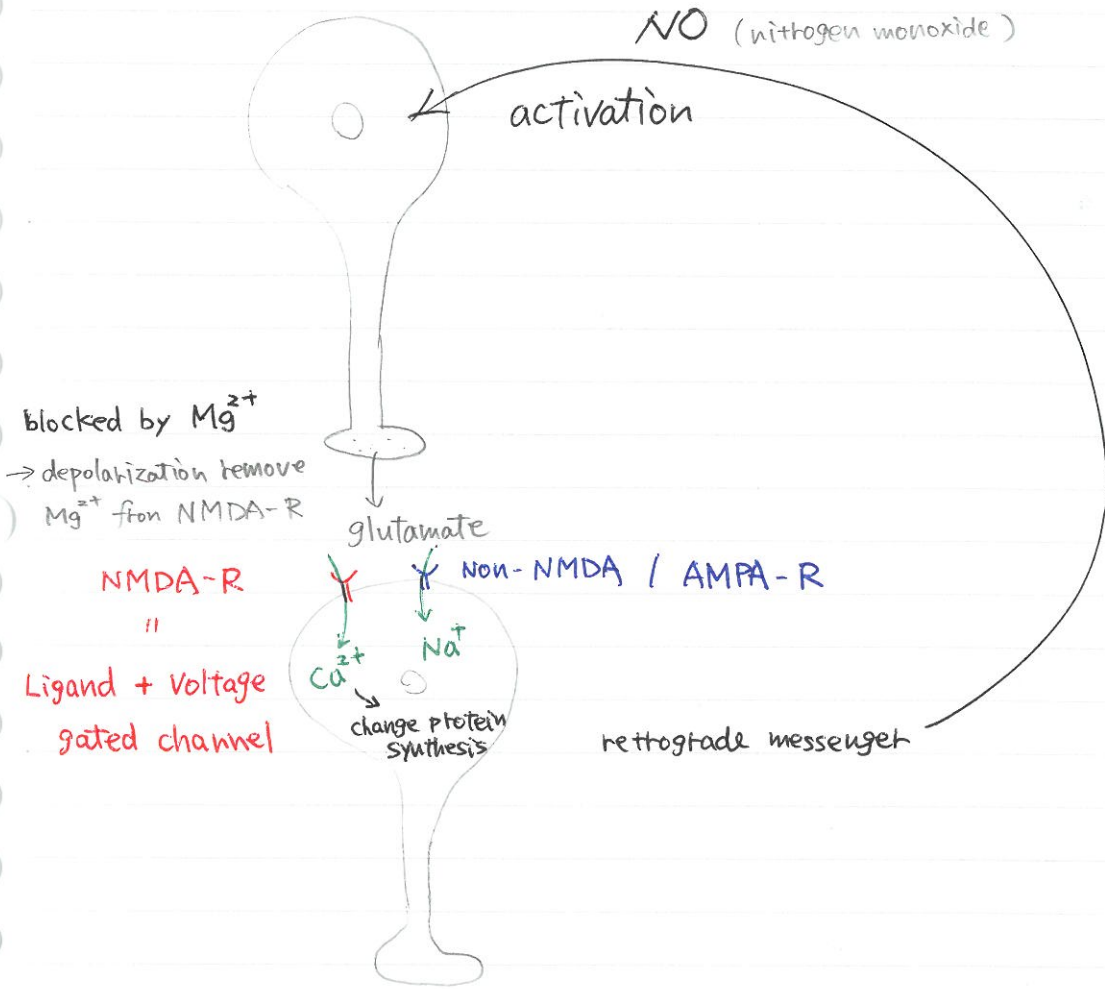 NO (nitrogen monoxide)
activation
blocked by Mg²⁺
→ depolarization remove
Mg²⁺ from NMDA-R
glutamate
NMDA-R
Non-NMDA / AMPA-R
"
Ligand + Voltage
gated channel
Ca²⁺
Na⁺
change protein
synthesis
retrograde messenger